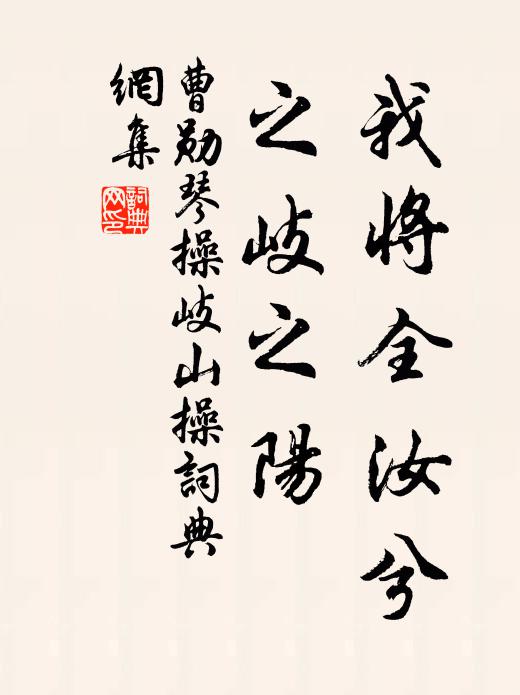 我將全汝兮
之岐之陽
曹勛琴操岐山操詞典
網集
詞典
网印